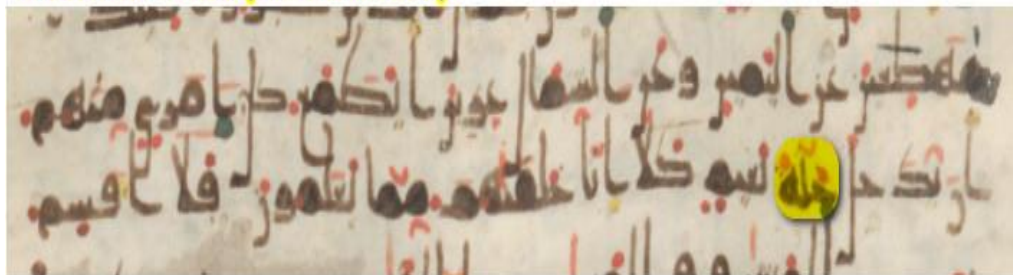 مهطعين عن اليمين وعن الشمال عزين ايطمع كل امرى منهم
ان يدخل جنة نعيم كلا انا خلقنهم مما يعلمون فلا اقسم